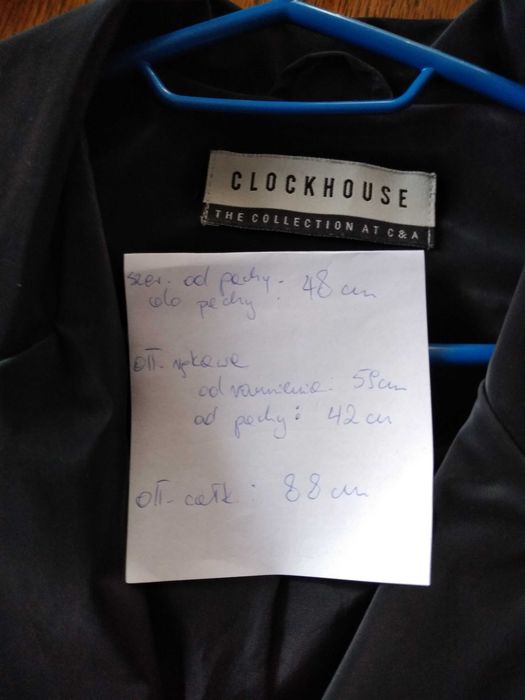 CLOCKHOUSE
THE COLLECTION AT C&A
szer. od pachy -
do pachy : 48 cm
dł. rękawa
od ramienia: 59cm
od pachy: 42 cm
dł. całk: 88 cm